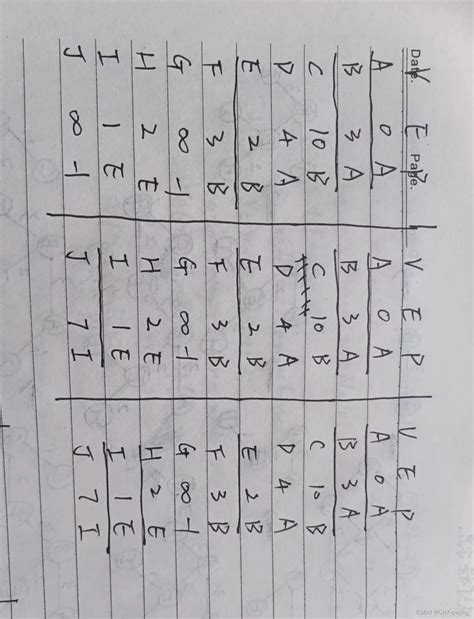 Date. Page.
V E P V E P V E P
A 0 A A 0 A A 0 A
B 3 A B 3 A B 3 A
C 10 B C 10 B C 10 B
D 4 A D 4 A D 4 A
E 2 B E 2 B E 2 B
F 3 B F 3 B F 3 B
G ∞ -1 G ∞ -1 G ∞ -1
H 2 E H 2 E H 2 E
I 1 E I 1 E I 1 E
J ∞ -1 J 7 I J 7 I
CSDN